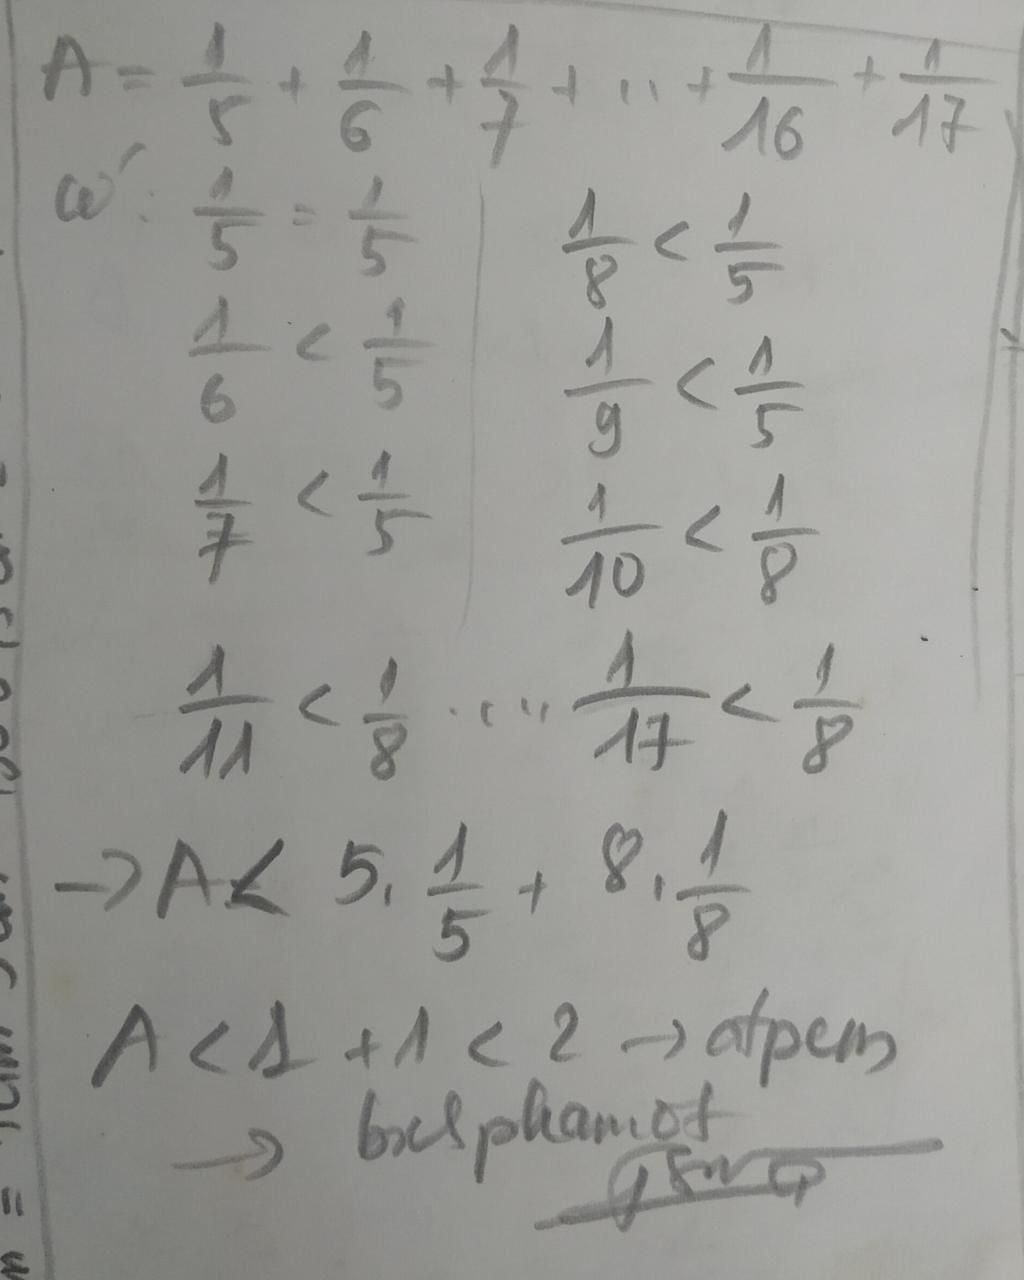 A = 1/5 + 1/6 + 1/7 + ... + 1/16 + 1/17
có: 1/5 = 1/5
1/6 < 1/5
1/7 < 1/5
1/8 < 1/5
1/9 < 1/5
1/10 < 1/8
1/11 < 1/8 ..... 1/17 < 1/8
-> A < 5. 1/5 + 8. 1/8
A < 1 + 1 < 2 -> đpcm
->